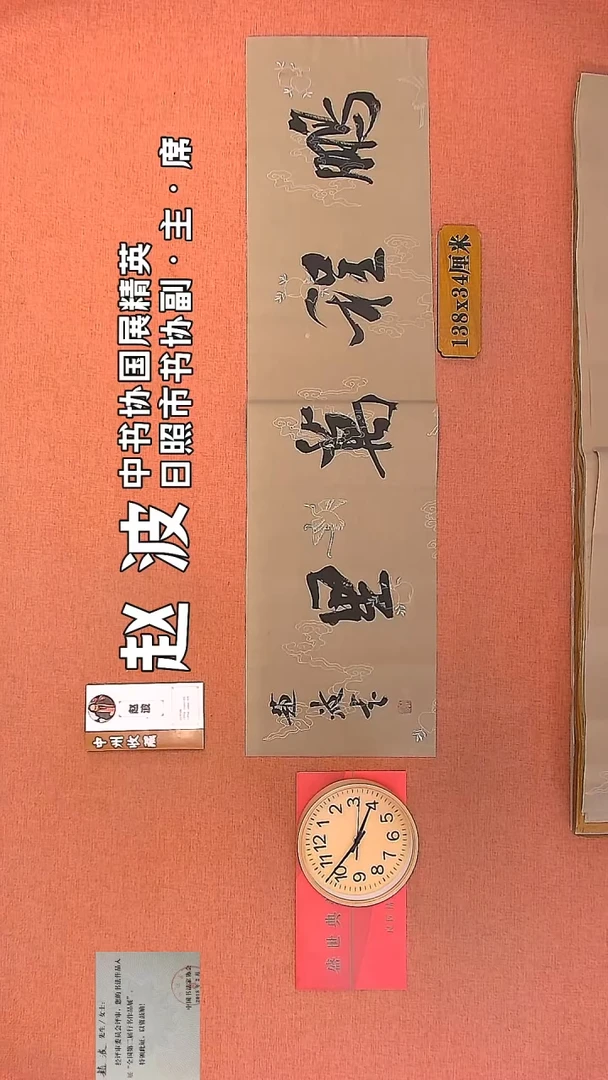 赵波
中书协国展精英
日照市书协副·主·席
鵬程萬里
趙波书
138x34厘米
赵波
中州收藏
盛世典
12 1 2 3 4 5 6 7 8 9 10 11
赵波 先生/女士:
经评审委员会评审,您的书法作品入
“全国第二届行书作品展”,
特颁此证,以资鼓励!
中国书法家协会